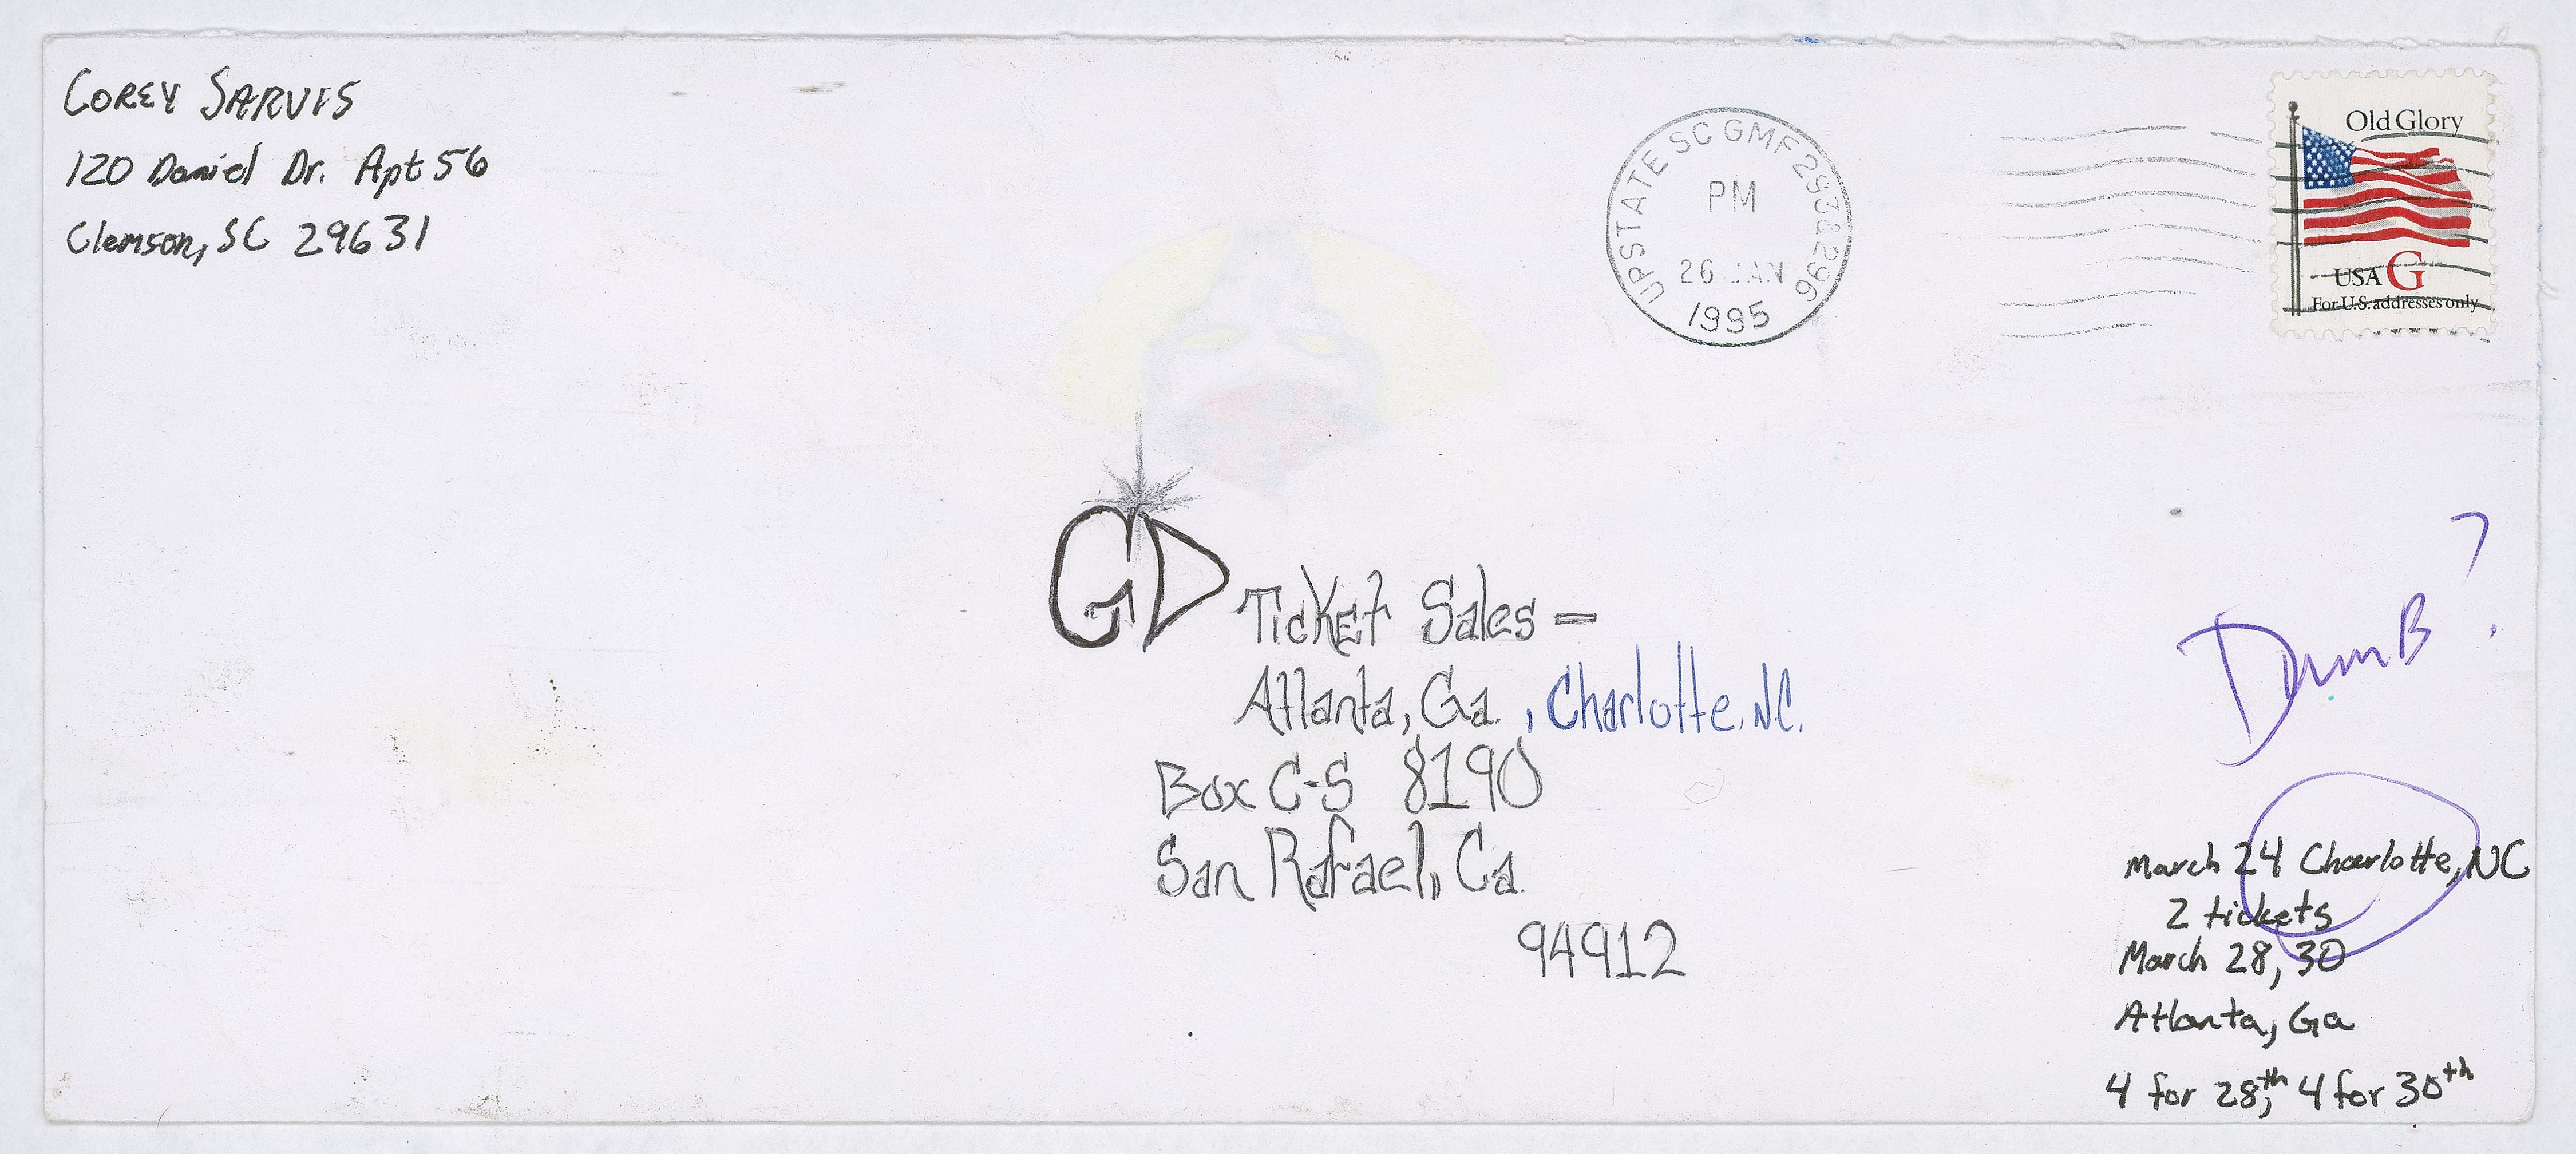 COREY SARVIS
120 Daniel Dr. Apt 56
Clemson, SC 29631
UPSTATE SC GMF 293 & 296
PM
26 JAN
1995
Old Glory
USA G
For U.S. addresses only
GD Ticket Sales —
Atlanta, Ga. , Charlotte, N.C.
Box C-S 8190
San Rafael, Ca.
94912
DumB ?
March 24 Charlotte, NC
2 tickets
March 28, 30
Atlanta, Ga
4 for 28th, 4 for 30th